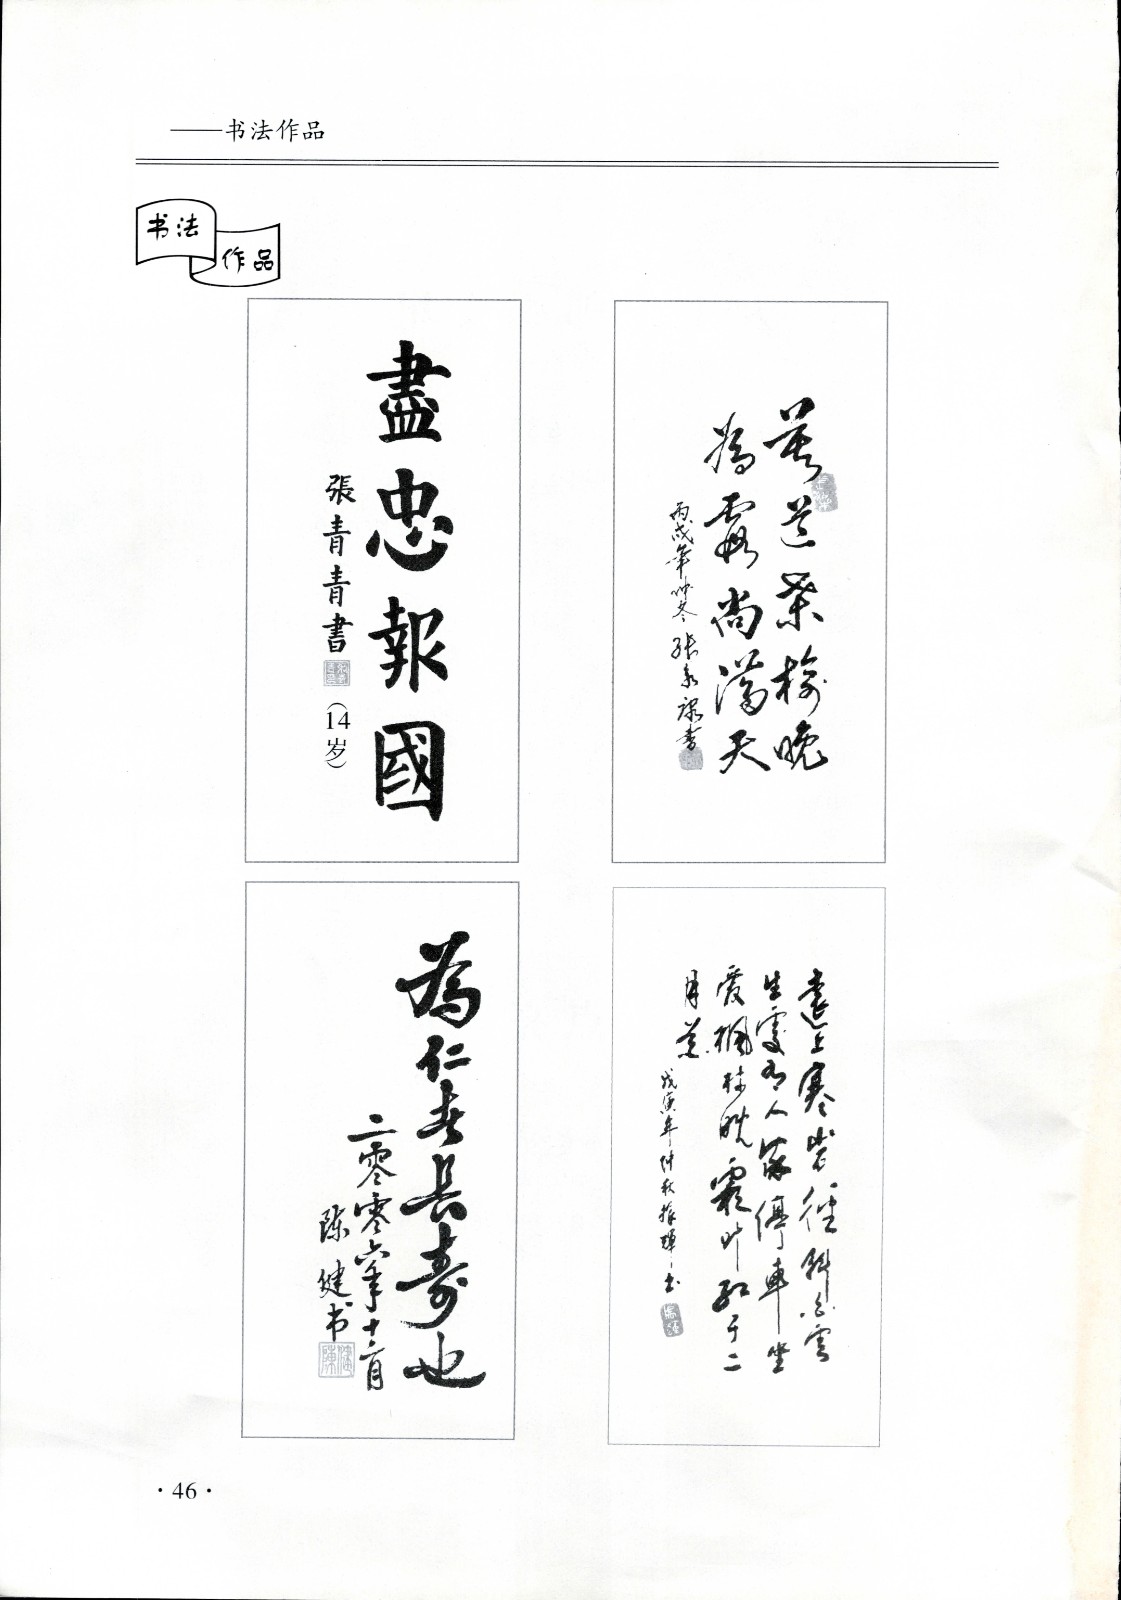 ——书法作品
书法
作品
盡忠報國
張青青書
(14岁)
莫道桑榆晚
為霞尚满天
丙戌年仲冬张永书
為仁者長壽也
二零零六年十二月
陈健书
遠上寒山石徑斜白雲
生處有人家停車坐
愛楓林晚霜叶红于二
月花
戊寅年仲秋振輝书
·46·